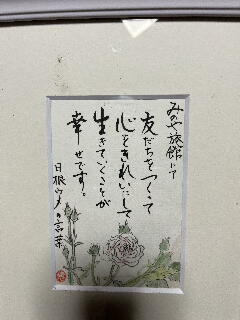 みのや旅館にて
友だちをつくって
心をきれいにして
生きていくことが
幸せです。
日根の言葉